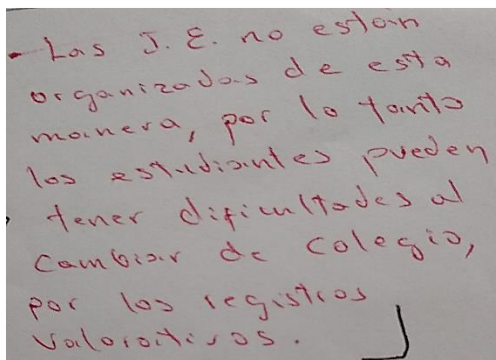 - Las I. E. no están
organizadas de esta
manera, por lo tanto
los estudiantes pueden
tener dificultades al
cambiar de colegio,
por los registros
valorativos.